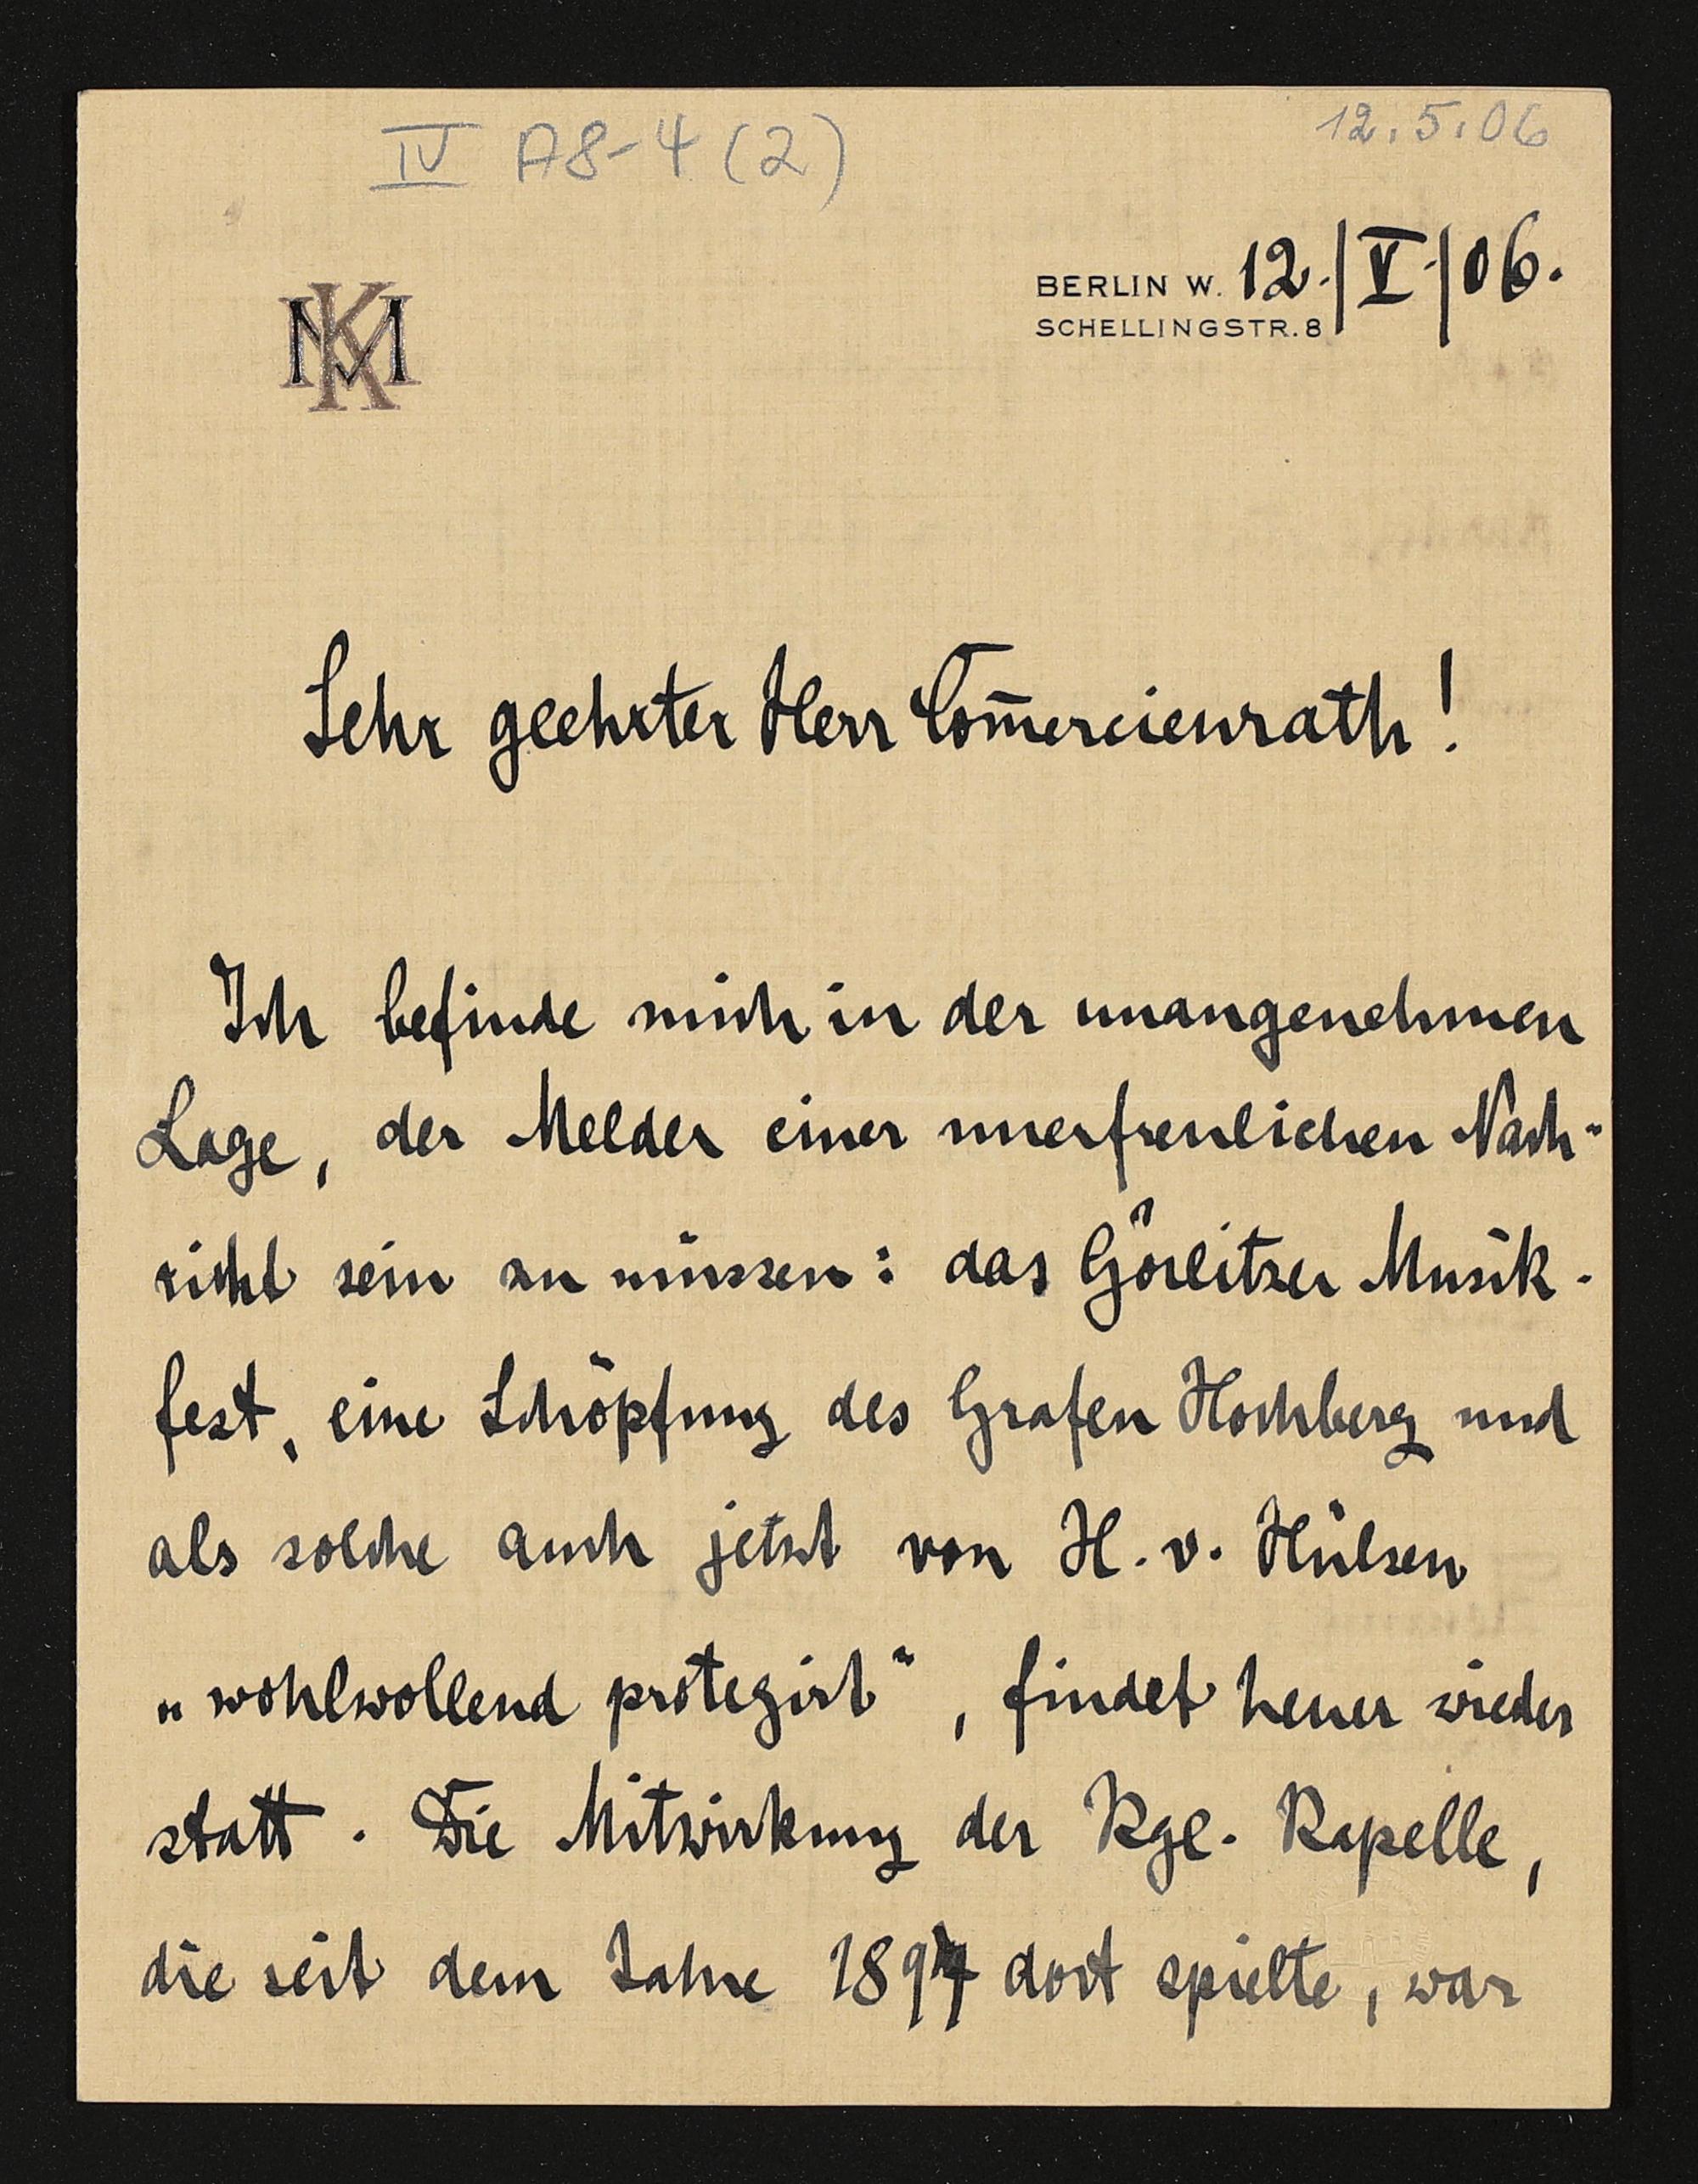 IV A8-4 (2)
12.5.06
BERLIN W. 12./V./06.
SCHELLINGSTR. 8
KM
Sehr geehrter Herr Com̅ercienrath!
Ich befinde mich in der unangenehmen
Lage, der Melder einer unerfreulichen Nach-
richt sein zu müssen: das Görlitzer Musik-
fest, eine Schöpfung des Grafen Hochberg und
als solche auch jetzt von H. v. Hülsen
„wohlwollend protegirt“, findet heuer wieder
statt. Die Mitwirkung der Kgl. Kapelle,
die seit dem Jahre 1897 dort spielte, war